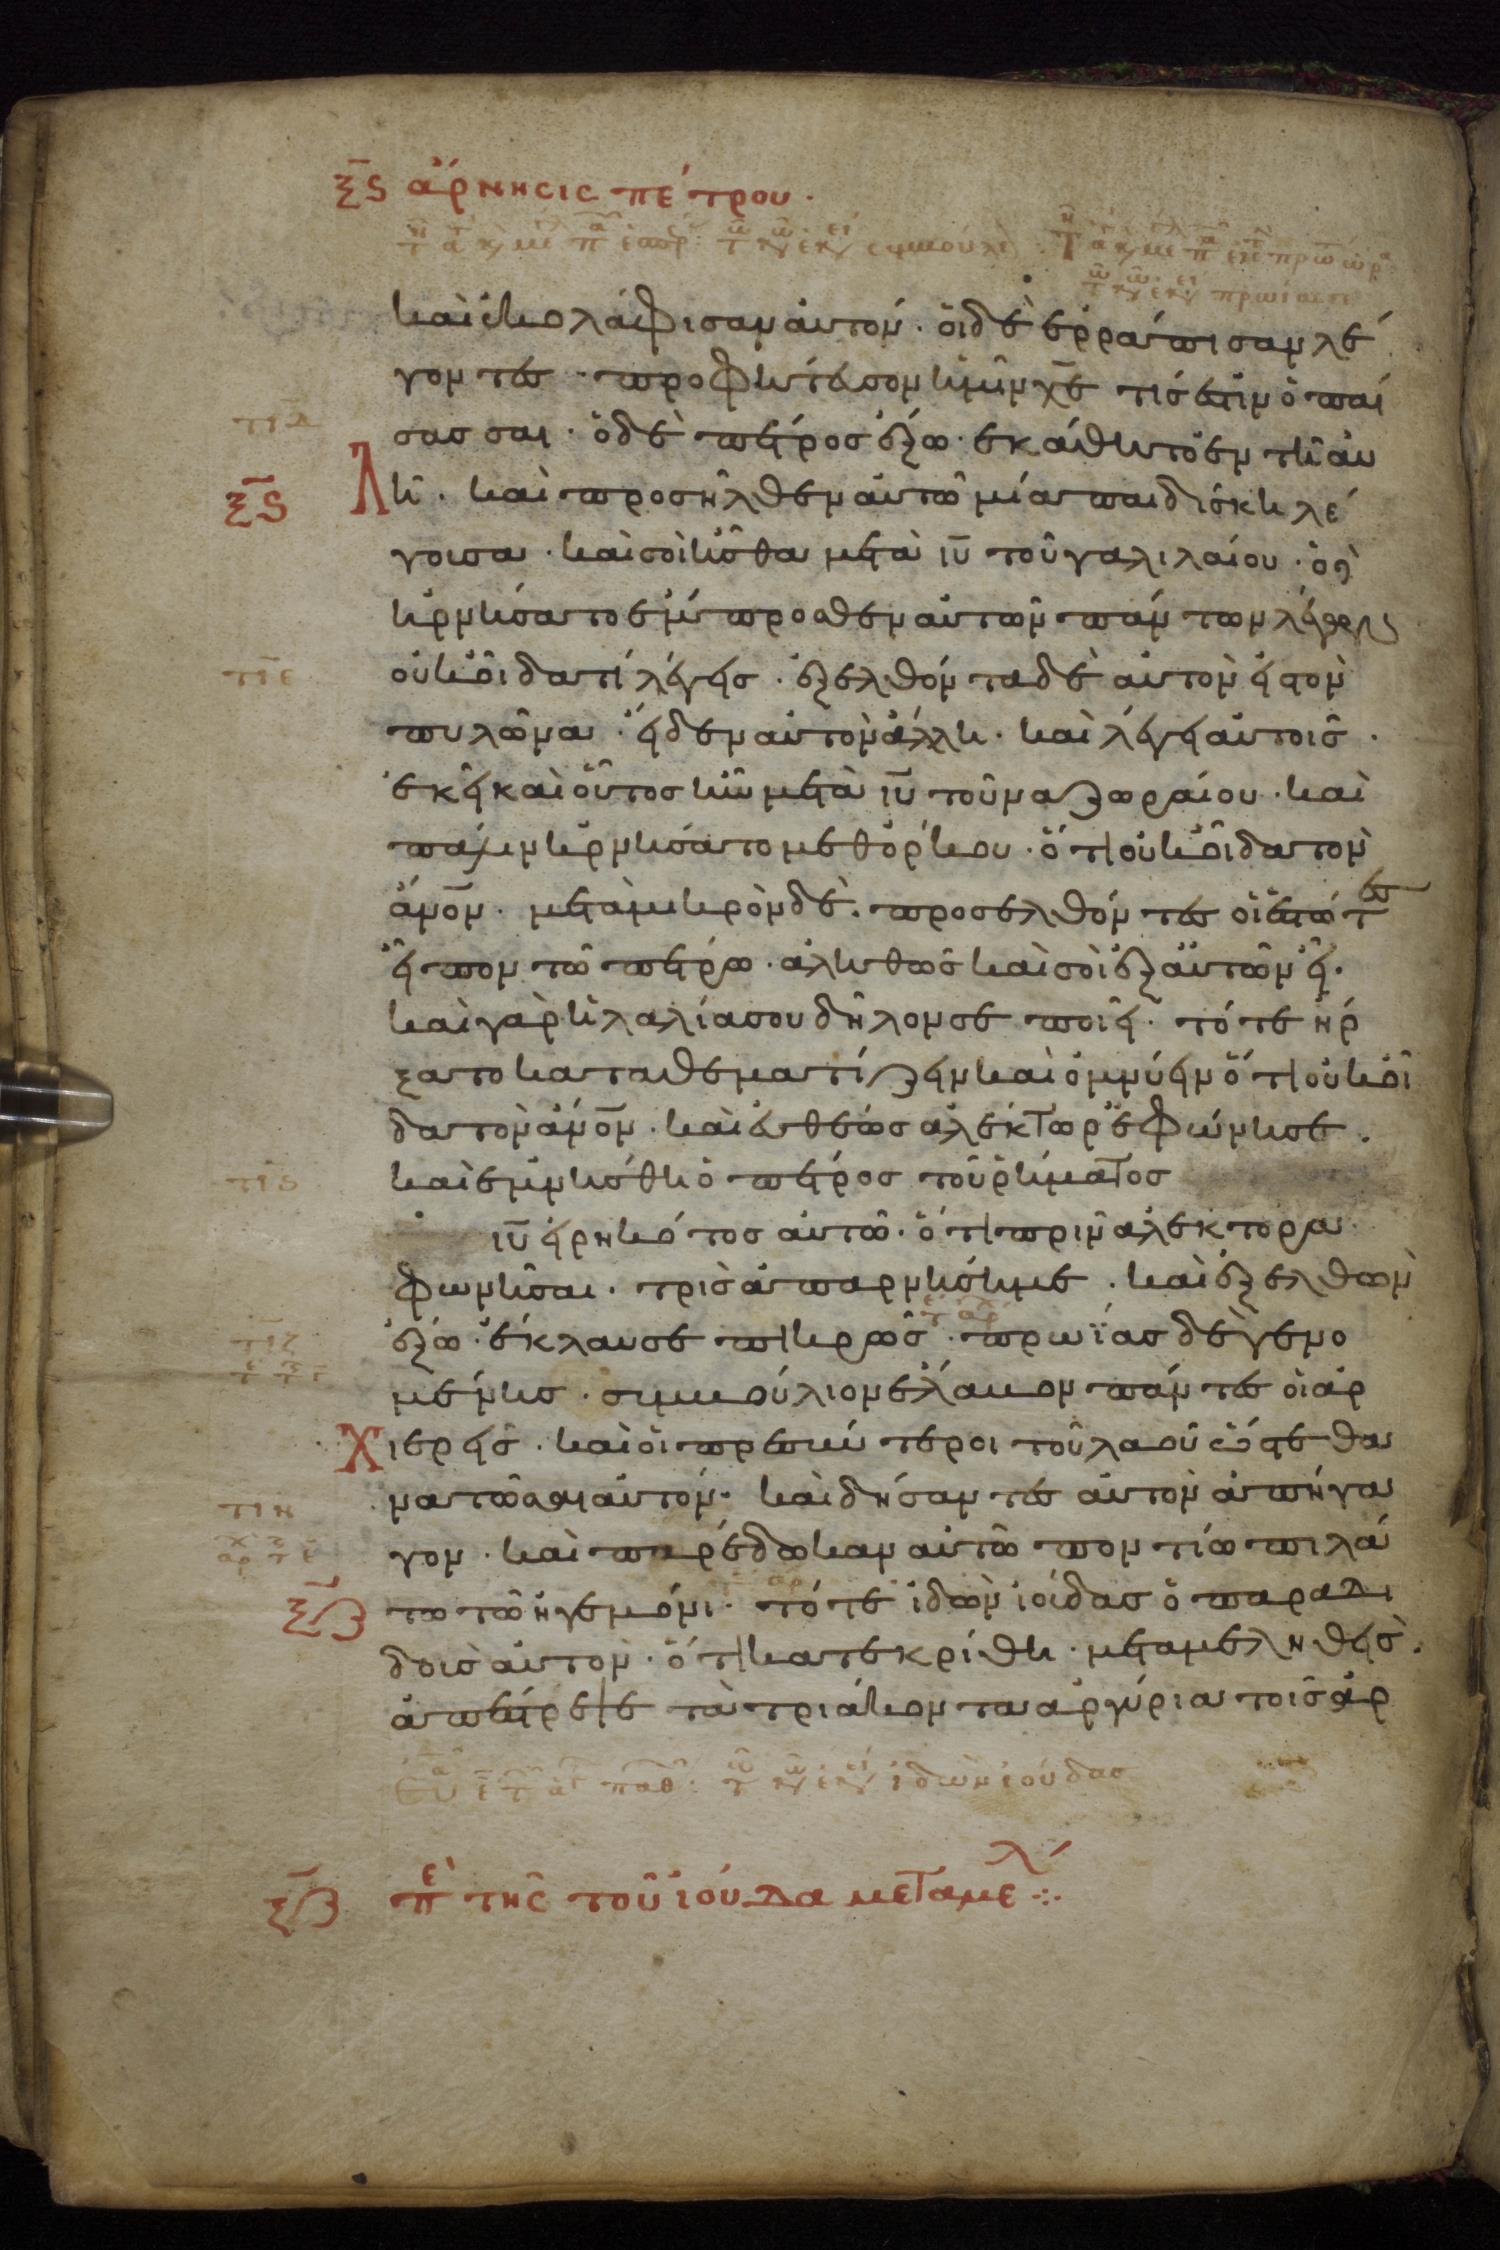 ξϛ ἄρνησις πέτρου ·
καὶ ἐκολάφισαν αὐτόν · οἱ δὲ ἐρράπισαν λέ
γοντες · προφήτευσον ἡμῖν χε τίς ἐστιν ὁ παί
τιδ
σας σαι · ὁ δὲ πέτρος ἔξω · ἐκάθητο ἐν τῆ αὐ
ξϛ
λῆ · καὶ προσῆλθεν αὐτῶ μία παιδίσκη λέ
γουσα · καὶ σοὶ ἦσθα μετὰ ιυ τοῦ γαλιλαίου · ὁ δὲ
ἠρνήσατο ἔμπροσθεν αὐτῶν πάντων λέγων
τιε
οὐκ οἶδα τί λέγεις · ἐξελθόντα δὲ αὐτὸν εἰς τὸν
πυλῶνα · εἶδεν αὐτὸν ἄλλη · καὶ λέγει αὐτοῖς ·
ἐκεῖ καὶ οὗτος ἦν μετὰ ιυ τοῦ ναζωραίου · καὶ
πάλιν ἠρνήσατο μεθ ὅρκου · ὅτι οὐκ οἶδα τὸν
ἄνον · μετὰ μικρὸν δὲ · προσελθόντες οἱ ἑστῶτες
εἶπον τῶ πέτρω · ἀληθῶς καὶ σοὶ ἐξ αὐτῶν εἶ ·
καὶ γὰρ ἡ λαλία σου δῆλον σε ποιεῖ · τότε ἤρ
ξατο καταθεματίζειν καὶ ὀμνύειν ὅτι οὐκ οἶ
δα τὸν ἄνον · καὶ εὐθέως ἀλέκτωρ ἐφώνησε ·
τιϛ
καὶ ἐμνήσθη ὁ πέτρος τοῦ ῥήματος
ιυ εἰρηκότος αὐτῶ · ὅτι πρὶν ἀλέκτορα
φωνῆσαι · τρὶς ἀπαρνήση με · καὶ ἐξελθὼν
τιζ
ἔξω · ἔκλαυσε πικρῶς · πρωΐας δὲ γενο
μένης · συμβούλιον ἔλαβον πάντες οἱ ἀρ
χιερεῖς · καὶ οἱ πρεσβύτεροι τοῦ λαοῦ ὥστε θα
τιη
νατῶσαι αὐτόν · καὶ δήσαντες αὐτὸν ἀπήγα
γον · καὶ παρέδωκαν αὐτῶ ποντίω πιλά
ξζ
τω τῶ ἡγεμόνι · τότε ἰδὼν ἰούδας ὁ παραδι
δοὺς αὐτὸν · ὅτι κατεκρίθη · μεταμεληθεὶς ·
ἀπέστρεψε τὰ τριάκοντα ἀργύρια τοῖς ἀρ
ἰδὼν ἰούδας
ξζ πε τῆς τοῦ ἰούδα μεταμελ